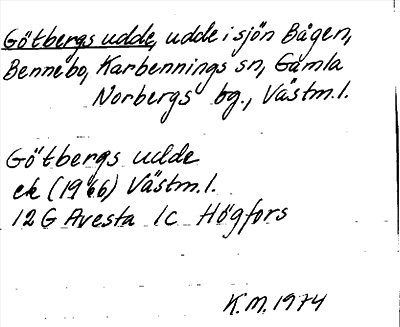 Götbergs udde, udde i sjön Bågen,
Bennebo, Karbennings sn, Gamla
Norbergs bg., Västm.l.
Götbergs udde
ek (1966) Västm.l.
12G Avesta 1c Högfors
K.M. 1974